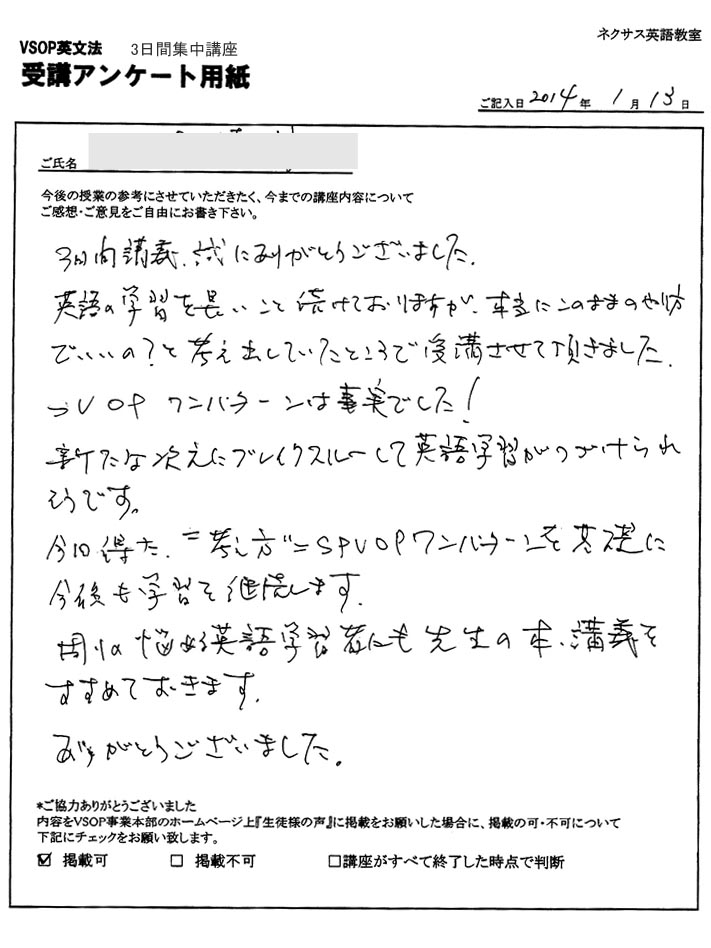 ネクサス英語教室
VSOP英文法 3日間集中講座
受講アンケート用紙
ご記入日 2014年 1月13日
ご氏名
今後の授業の参考にさせていただきたく、今までの講座内容について
ご感想・ご意見をご自由にお書き下さい。
3日間講義、誠にありがとうございました。
英語の学習を長いこと続けておりますが、本当にこのままのやり方
でいいの？と考え出していたところで受講させて頂きました。
VOP ワンパターンは事実でした！
新たな次元にブレイクスルーして英語学習がつづけられ
そうです。
今回得た、"考え方"=SPVOPワンパターンを基礎に
今後も学習を継続します。
周りの悩める英語学習者にも先生の本、講義を
すすめておきます。
ありがとうございました。
*ご協力ありがとうございました
内容をVSOP事業本部のホームページ上『生徒様の声』に掲載をお願いした場合に、掲載の可・不可について
下記にチェックをお願い致します。
☑ 掲載可 □ 掲載不可 □講座がすべて終了した時点で判断